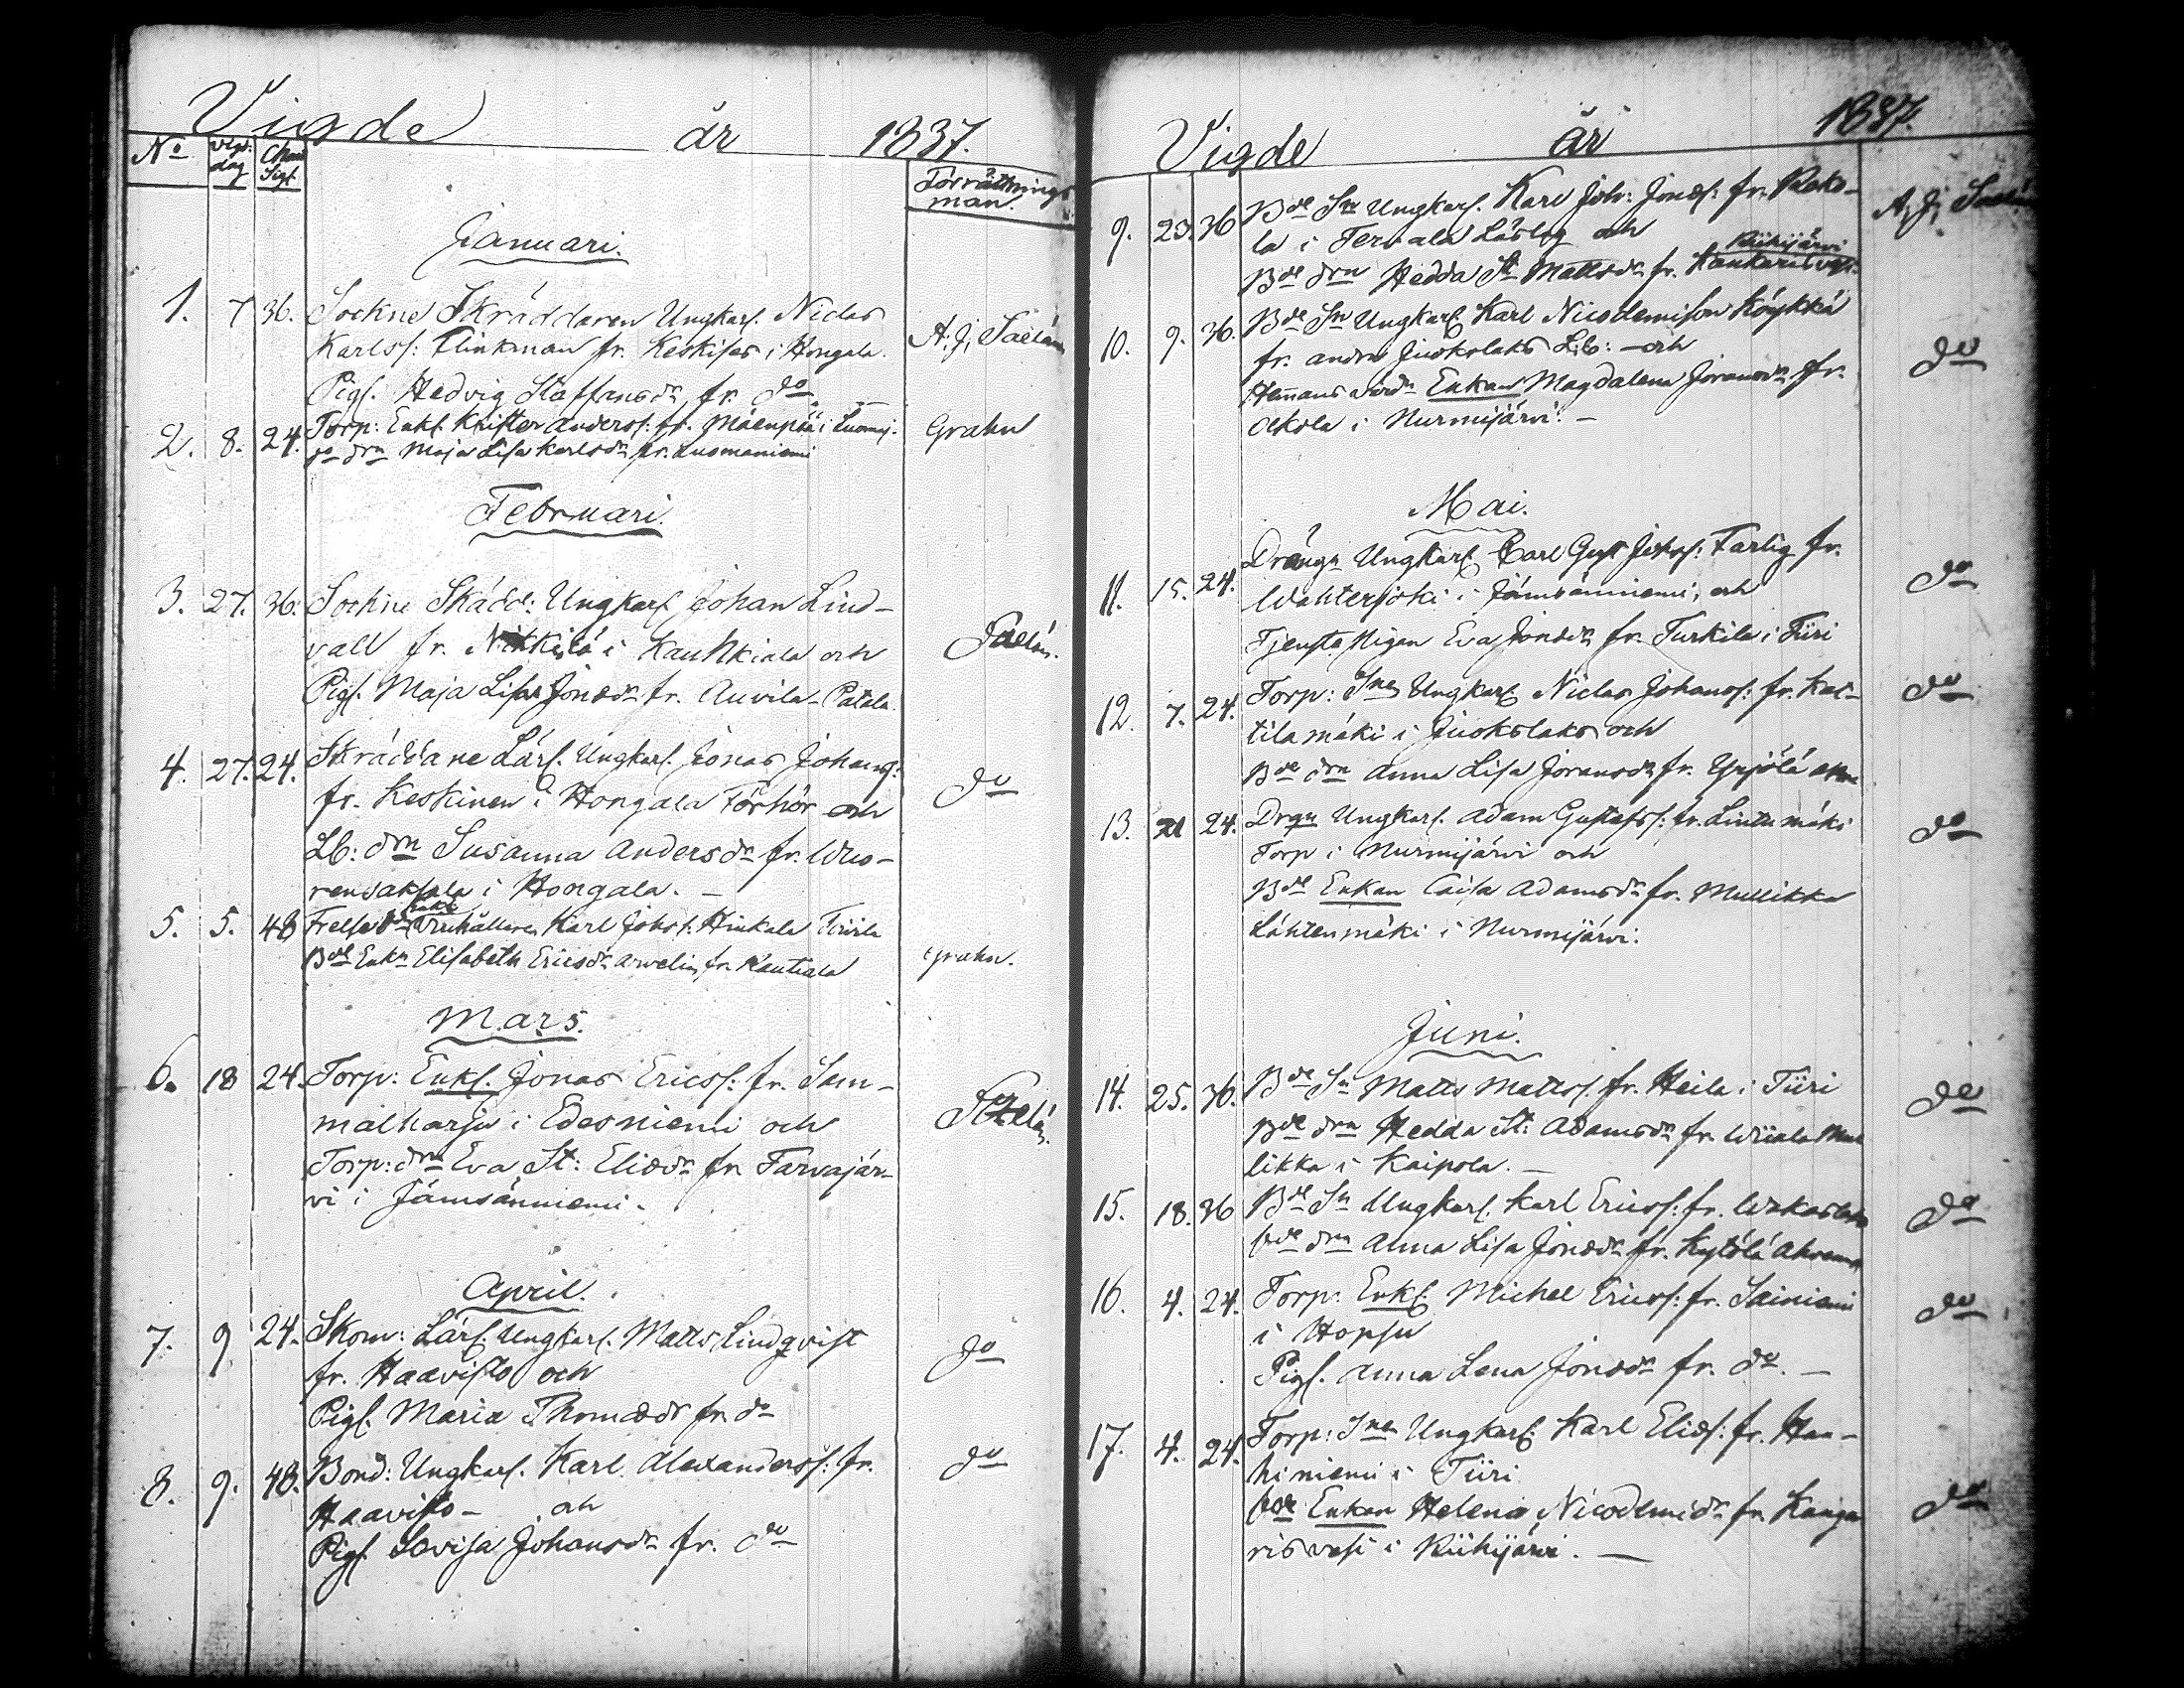 Vigde år 1837.
No Vigs: dag Char. Sigl. Förrättnings man.
Januari.
1. 7 36. Sockne Skräddaren Ungkarl. Niclas
Karlss: Flinkman fr. Keskises i Hongala. A. J. Saelán
Pigl. Hedvig Staffansdr fr. do
2. 8. 24. Torp: Enkl. Krister Anderss: fr. Mäenpää i Luomj. Grahn
do drn Maja Lisa Karlsdr fr. Luomaniemi
Februari.
3. 27. 36. Sockne Skädd: Ungkarl Johan Lind-
vall fr. Nikkilä i Kauhkiala och Saelán.
Pigl. Maja Lisa Jonædr fr. Auvila Patala.
4. 27. 24. Skräddare Lärl. Ungkarl. Jonas Johanss:
fr. Keskinen i Hongala Förhör och do
Lb: drn Susanna Andersdr fr. Wuo-
rensaksala i Hongala. -
5. 5. 48 Frelse Karl Johss: Hinkala Tiirila
Bde Enkn Elisabeth Ericsdr Arvelin fr. Rautiala Grahn.
Mars.
6. 18 24. Torp: Enkl. Jonas Ericss: fr. Sam-
malharju i Edesniemi och Saelán.
Torp: drn Eva St: Eliædr fr. Tarvajär-
vi i Jämsänniemi.
April.
7. 9 24. Skom: Lärl. Ungkarl. Matts Lindqvist do
fr. Haavisto och
Pigl. Maria Thomædr fr. do
8. 9. 48. Bond: Ungkarl. Karl Alexanderss: fr. do
Haavisto - och
Pigl. Lovisa Johansdr fr. do
Vigde år 1837.
9. 23. 36 Bde Sn Ungkarl. Karl Joh: Jonæs: fr. Pasko- A. J. Saelán
la i Tervala Låslag och
Riihijärvi
Bde drn Hedda St Mattsdr fr. Kankarisvesi.
10. 9. 36. Bde Sn Ungkarl. Karl Nicodemison Köykkä
fr. andra Juokslaks Lib: - och do
Hemmansvärdn Enkan Magdalena Joransdr fr.
Ockola i Nurmijärvi. -
Mai.
11. 15. 24. Drängn Ungkarl. Carl Gust Johss: Farlig fr. do
Wahterjoki i Jämsänniemi, och
Tjenste Pigan Eva Jonædr fr. Turkila i Tiiri
12. 7. 24. Torp: Snen Ungkarl. Niclas Johanss: fr. Kat- do
tilamäki i Juokslaks och
Bde drn Anna Lisa Joransdr fr. Yrjölä
13. 21 24. Drgn Ungkarl. Adam Gustafss: fr. Lintumäki do
Torp i Nurmijärvi och
Bde Enkan Caisa Adamsdr fr. Mullikka
Lähtenmäki i Nurmijärvi.
Juni.
14. 25. 36. Bde Sn Matts Mattss. fr. Heila i Tiiri do
Bde drn Hedda St: Adamsdr fr. Wiiala Mul
likka i Kaipola. -
15. 18. 36 Bde Sn Ungkarl. Karl Ericss: fr. do
bde drn Anna Lisa Jonædr fr. Kytölä
16. 4. 24. Torp: Enkl. Michel Ericss: fr. Sainiemi do
i Hopsu
Pigl. Anna Lena Jonædr fr. do. -
17. 4. 24. Torp: Snen Ungkarl. Karl Eliæs: fr. Han-
hiniemi i Tiiri
bde Enkan Helena Nicodemidr fr. Kanga do
risvesi i Riihijärvi. -